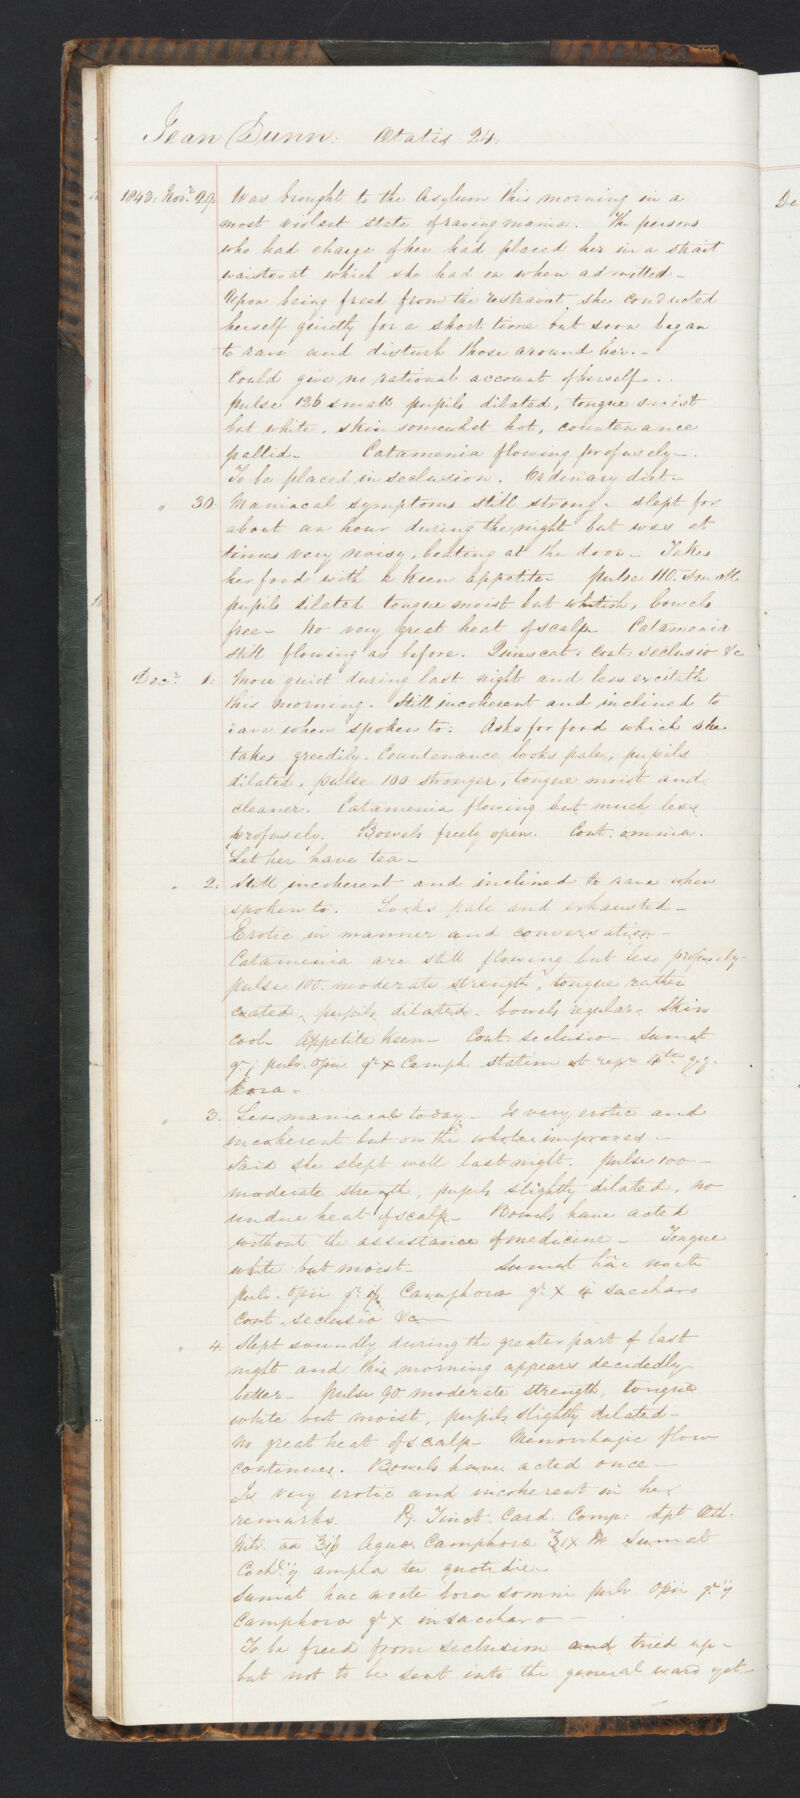 Jean Dunn: Ætatis 24.
1843: Novr. 29. Was brought to the Asylum this morning in a
most violent state of raving mania. The persons
who had charge of her had placed her in a strait
waistcoat which she had on when admitted –
Upon being freed from the restraint she conducted
herself quietly for a short time but soon began
to rave and disturb those around her. –
Could give no rational account of herself. .
pulse 126 small pupils dilated, tongue moist
but white, skin somewhat hot, countenance
pallid – Catamenia flowing profusely –.
To be placed in seclusion. Ordinary diet –
" 30. Maniacal symptoms still strong – slept for
about an hour during the night but was at
times very noisy, beating at the door – Takes
her food with a keen appetite – pulse 110. small
pupils dilated tongue moist but whitish, bowels
free – No very great heat of scalp Catamenia
still flowing as before. cont: seclusio &c
Decr. 1: More quiet during last night and less excitable
this morning. Still incoherent and inclined to
rave when spoken to: Asks for food which she
takes greedily. Countenance looks pale, pupils
dilated, pulse 100 stronger, tongue moist and
cleaner. Catamenia flowing but much less
profusely. Bowels freely open. Cont. omnia.
Let her have tea –
" 2: Still incoherent and inclined to rave when
spoken to. Looks pale and exhausted –
Erotic in manner and conversation –
Catamenia are still flowing but less profusely
pulse 100. moderate strength, tongue rather
coated, pupils dilated – bowels regular – Skin
cool – Appetite keen – Cont: seclusio – Sumat
gr. j pulv. opii gr x Camph. statim et repr 4tâ qq.
hora –
" 3. Less maniacal today – Is very erotic and
incoherent but on the whole improved –
Said she slept well last night. Pulse 100 –
moderate strength, pupils slightly dilated, no
undue heat of scalp – Bowels have acted
without the assistance of medicine – Tongue
white but moist – Sumat hâc nocte
pulv. opii gr. ij Camphora gr. X in saccharo
Cont. seclusio &c –
" 4. Slept soundly during the greater part of last
night and this morning appears decidedly
better – Pulse 90 moderate strength, tongue
white but moist, pupils slightly dilated –
No great heat of scalp – Menorrhagic flow
continues. Bowels have acted once –
Is very erotic and incoherent in her
remarks. ℞. Tinct. Card. Comp: Spt Æth.
Nitr. aa Aquæ Camphora ʒix M Sumat
Cochl. ij ampla ter quotidie –
Sumat hac nocte hora somni pulv opii gr. ij
Camphora gr x in saccharo –
To be freed from seclusion and tried up –
but not to be sent into the general ward yet –
De